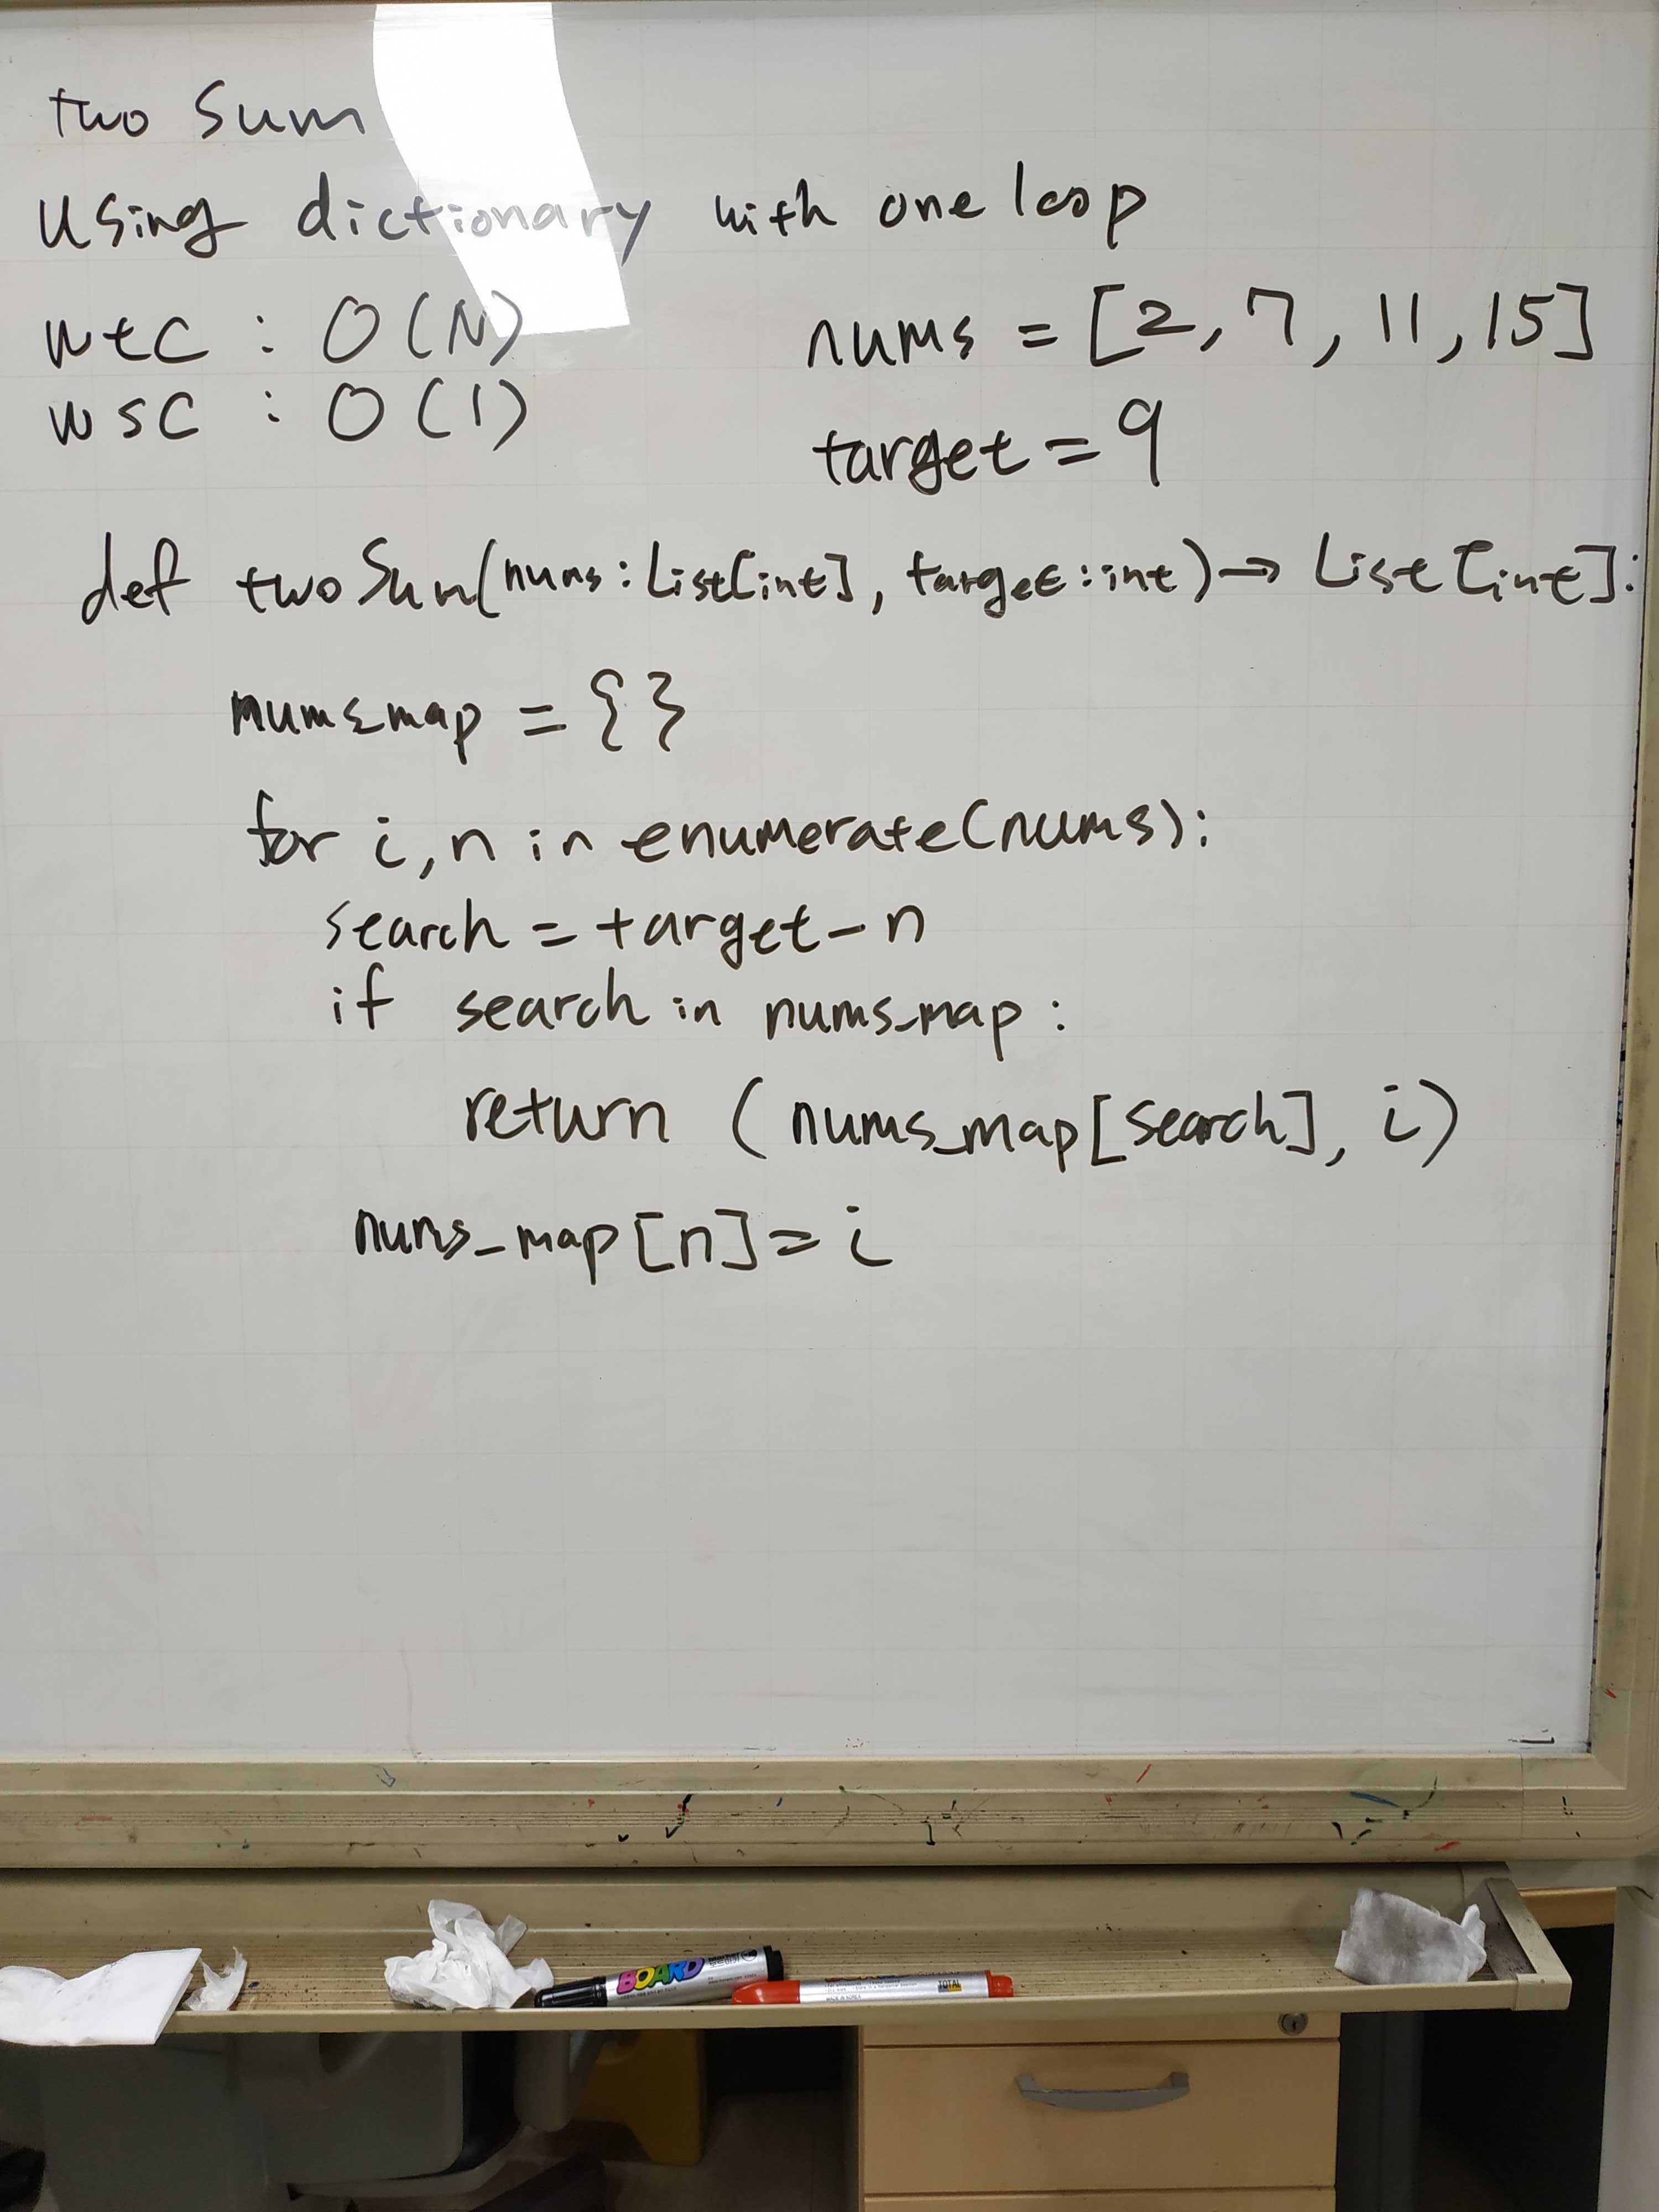 two Sum
Using dictionary with one loop
wtc : O(N)
nums = [2, 7, 11, 15]
wsc : O(1)
target = 9
def twoSum(nums: List[int], target: int) → List[int]:
nums_map = { }
for i, n in enumerate(nums):
search = target - n
if search in nums_map :
return (nums_map[search], i)
nums_map[n] = i
BOARD
TOTAL